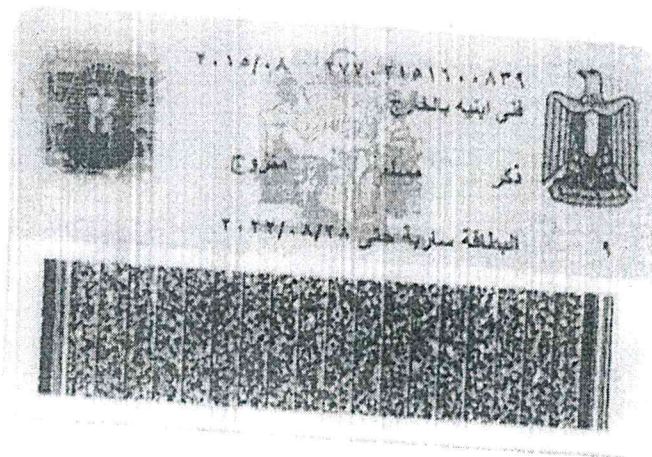 ٢٧٧٠٢١٥١٦٠٠٨٣٩ ٢٠١٥/٠٨
فنى ابنيه بالخارج
ذكر مسلم متزوج
البطاقة سارية حتى ٢٠٢٢/٠٨/٢٨